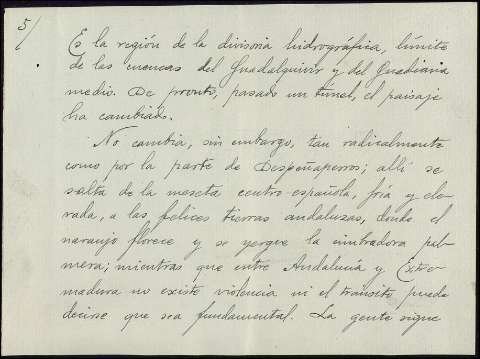 5/
Es la región de la divisoria hidrográfica, límite
de las cuencas del Guadalquivir y del Guadiana
medio. De pronto, pasado un túnel, el paisaje
ha cambiado.
No cambia, sin embargo, tan radicalmente
como por la parte de Despeñaperros; allí se
salta de la meseta centro española, fría y ele-
vada, a las felices tierras andaluzas, donde el
naranjo florece y se yergue la cimbradora pal-
mera; mientras que entre Andalucía y Extre-
madura no existe violencia ni el tránsito puede
decirse que sea fundamental. La gente sigue